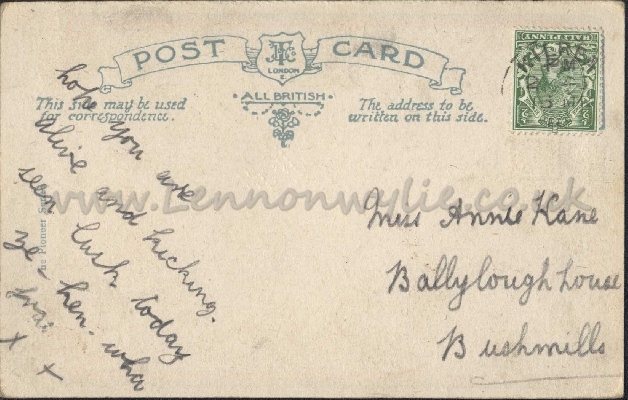 POST CARD
LONDON
ALL BRITISH
This side may be used
for correspondence.
The address to be
written on this side.
HALFPENNY
www.Lennonwylie.co.uk
hope you are
alive and kicking.
seen Lush today
ye - hen - wha
x x
Miss Annie Kane
Ballylough House
Bushmills
The Pioneer